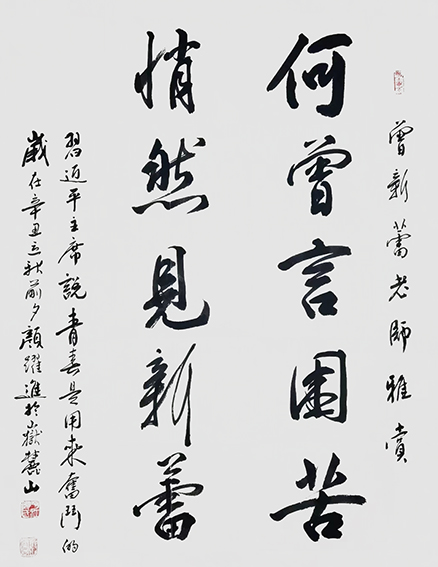 曾新蕾老師雅賞
何曾言困苦
悄然見新蕾
習近平主席說青春是用來奮鬥的
歲在辛丑立秋前夕顏躍進於嶽麓山